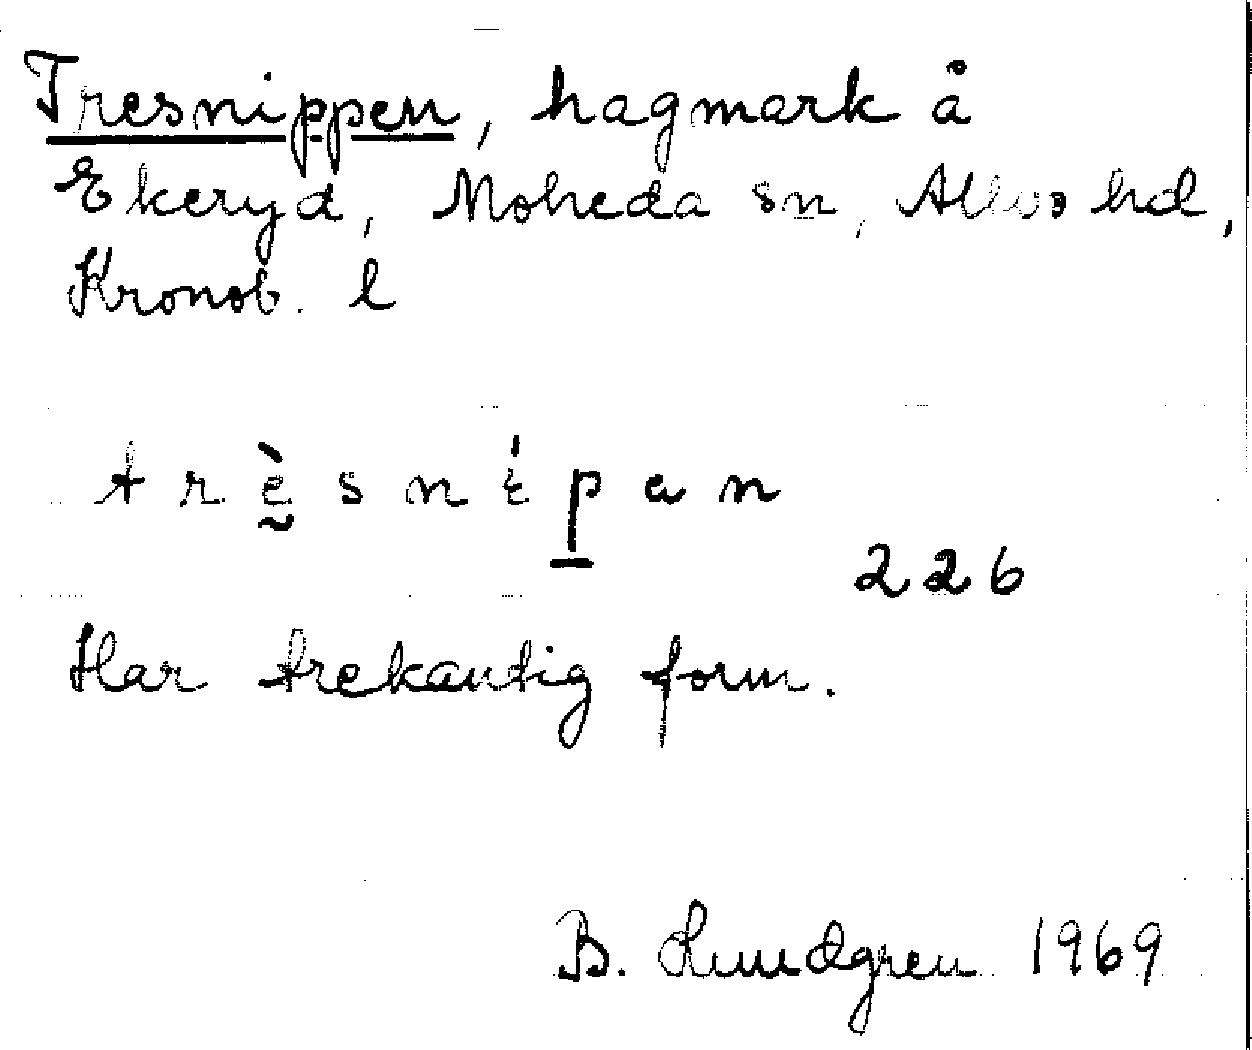 Tresnippen, hagmark å
Ekeryd, Moheda sn, Allbo hd,
Kronob. l
trèsnípan
226
Har trekantig form.
B. Lundgren 1969